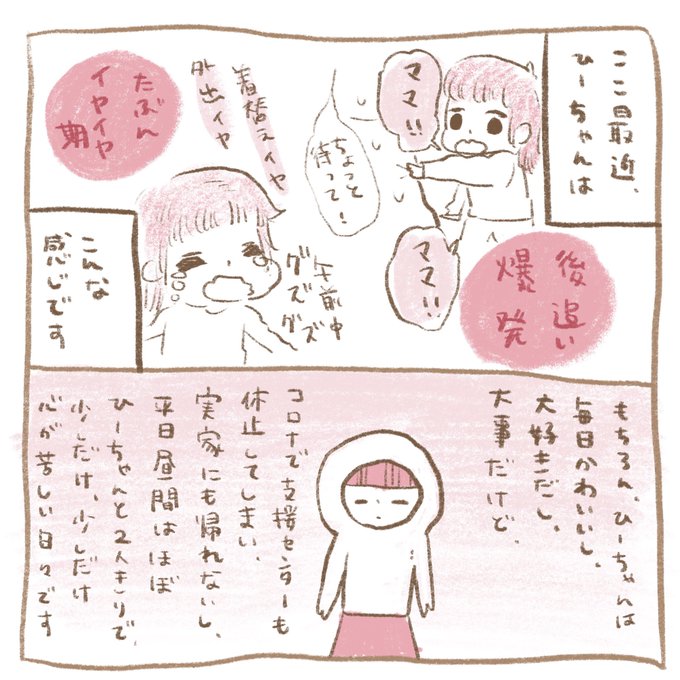 ここ最近、
ひーちゃんは
ママ!!
ママ!!
ちょっと
待って!
後追い
爆発
着替えイヤ
外出イヤ
たぶん
イヤイヤ
期
午前中
グズグズ
こんな
感じです
もちろん、ひーちゃんは
毎日かわいいし、
大好きだし、
大事だけど、
コロナで支援センターも
休止してしまい、
実家にも帰れないし、
平日昼間はほぼ
ひーちゃんと2人きりで、
少しだけ、少しだけ
心が苦しい日々です